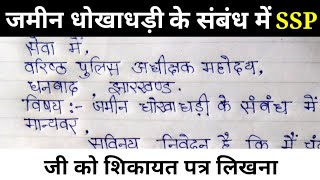 जमीन धोखाधड़ी के संबंध में SSP
सेवा में,
वरिष्ठ पुलिस अधीक्षक महोदय,
धनबाद, झारखण्ड.
विषय :- जमीन धोखाधड़ी के संबंध में
मान्यवर,
सविनय निवेदन है कि मैं
जी को शिकायत पत्र लिखना